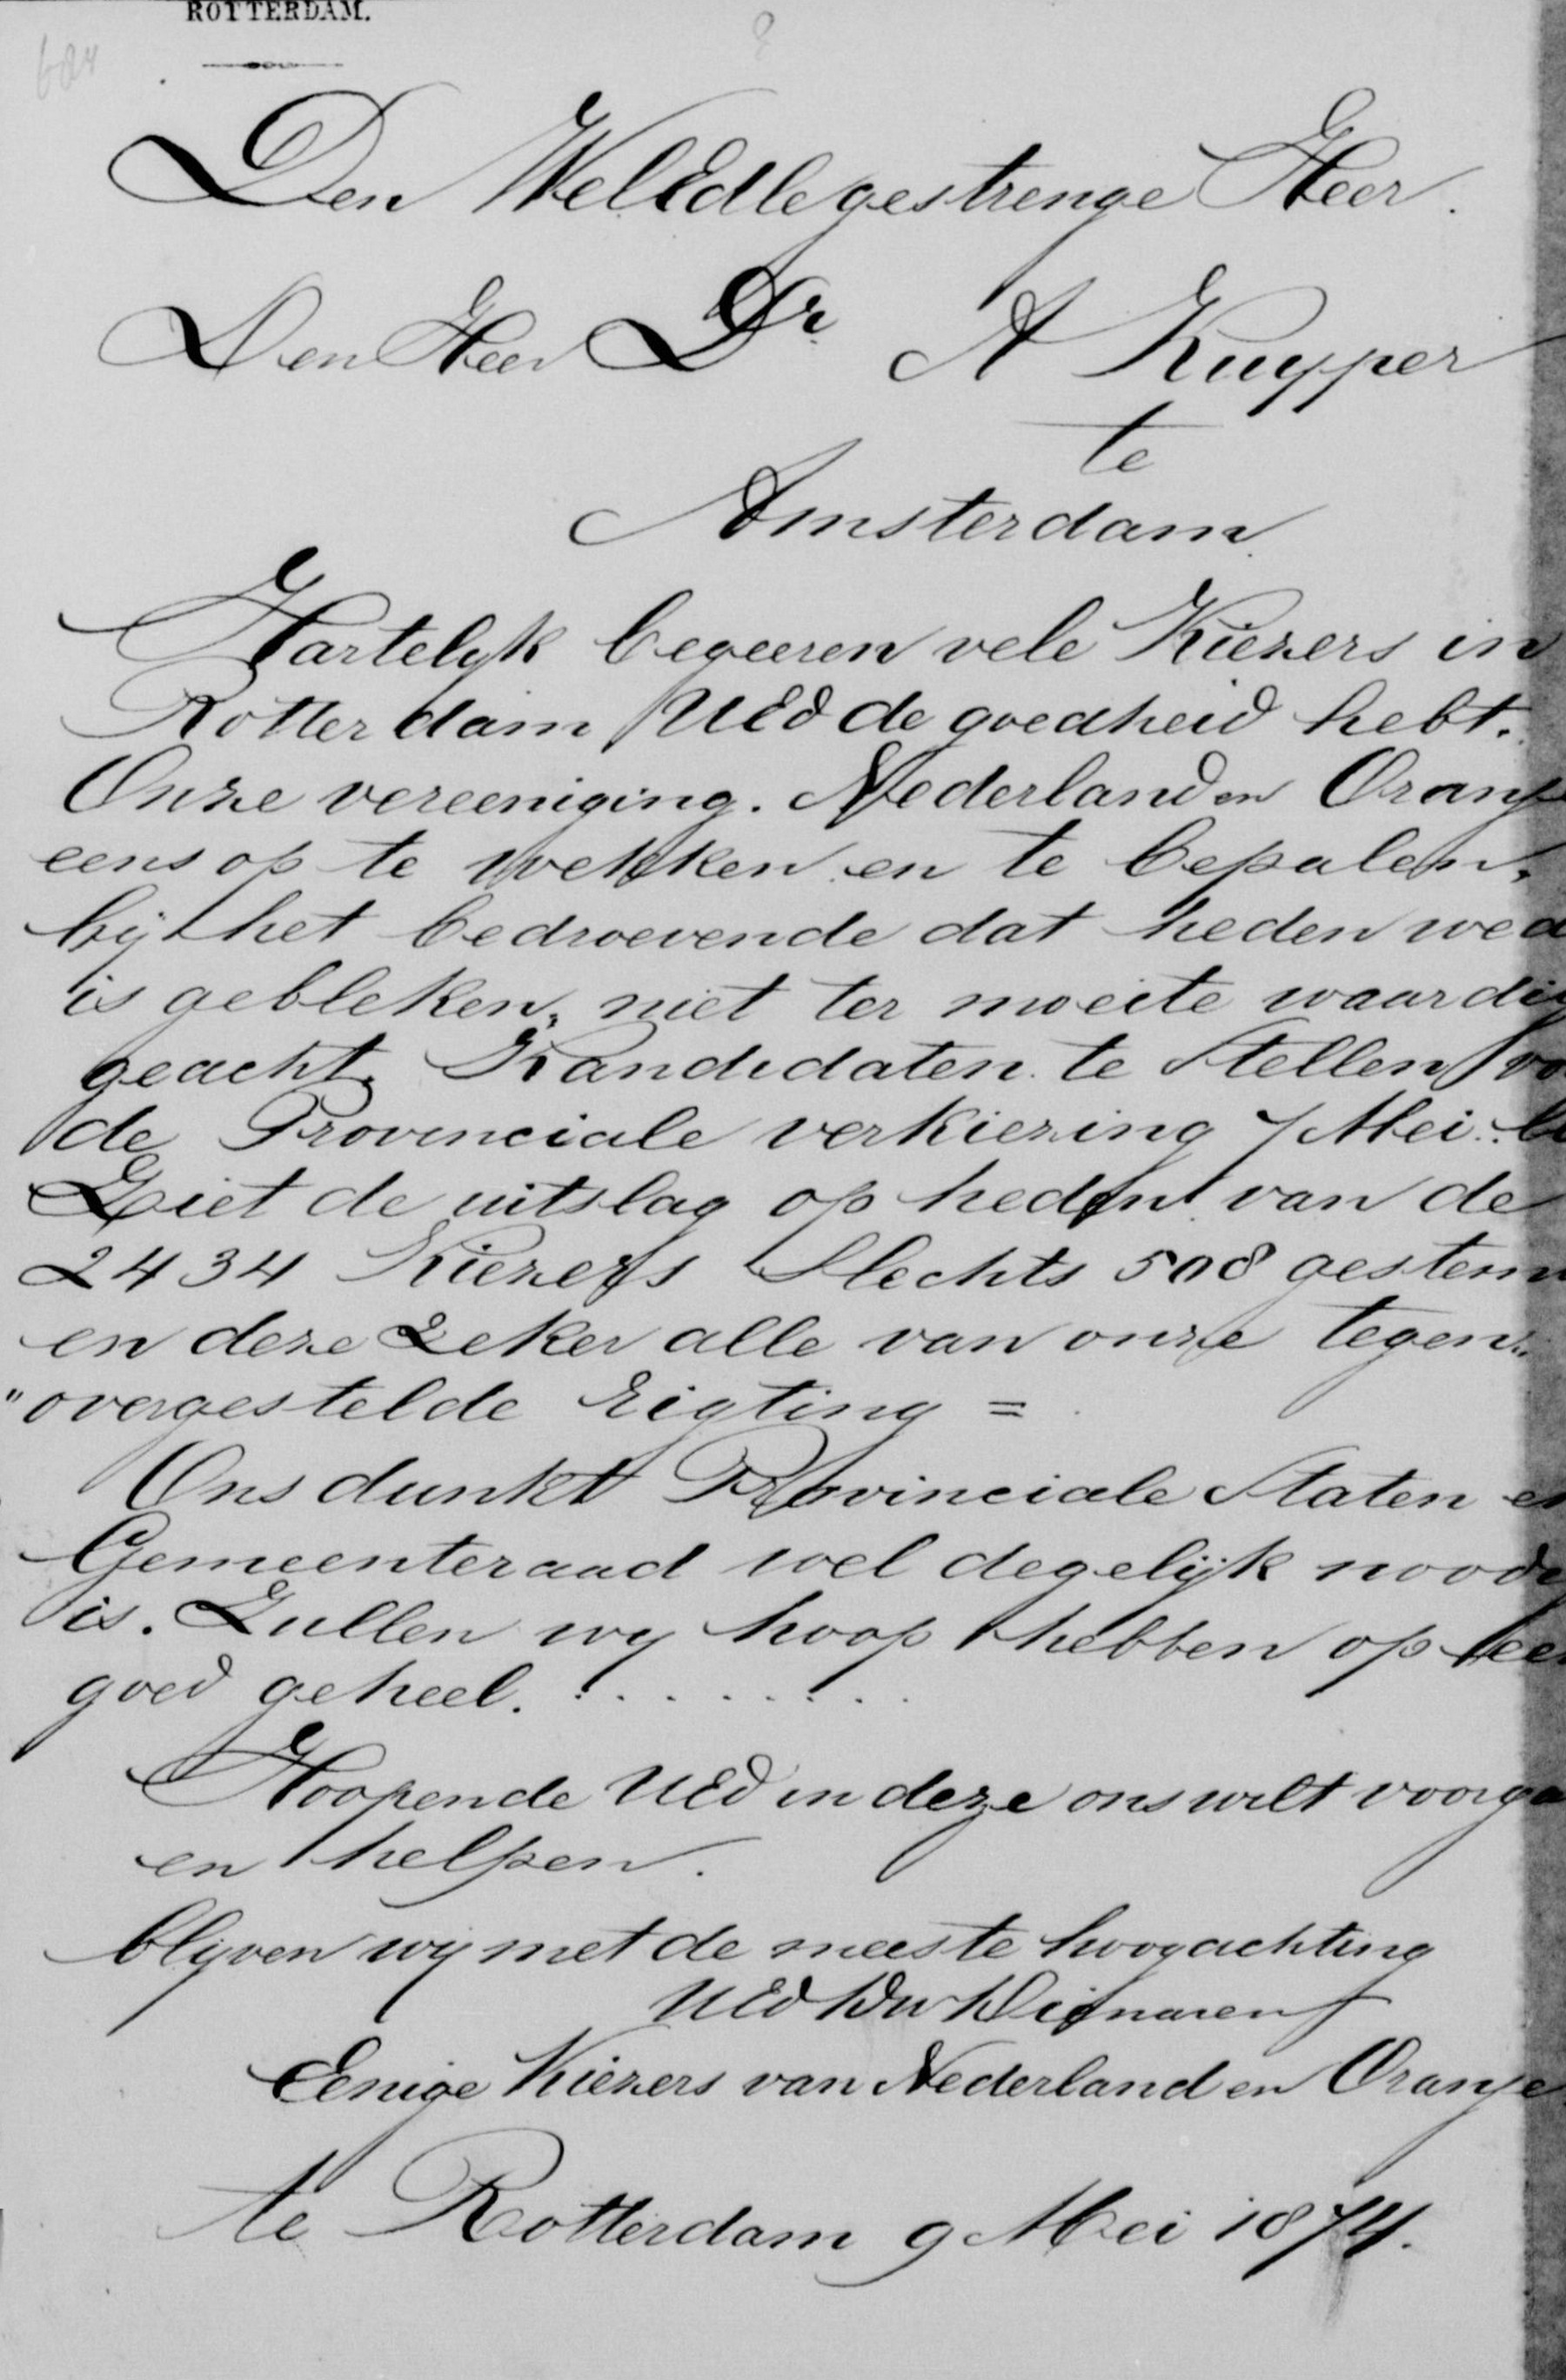 ROTTERDAM.
Den WelEdlegestrenge Heer.
Den Heer Dr A Kuyper
te
Amsterdam
Hartelyk begeeren vele Kiezers in
Rotterdam UEd de goedheid hebt.
Onze vereeniging. Nederland en Oranje
eens op te wekken en te bepalen,
bij het bedroevende dat heden
is gebleken, niet ter moeite
geacht, Kandidaten te Stellen
de Provinciale verkiezing 7 Mei
Ziet de uitslag op heden van de
2434 Kiezers Slechts 508
en deze Zeker alle van onze tegen„
„overgestelde Rigting =
Ons dunkt Provinciale Staten
Gemeenteraad wel degelijk
is. Zullen wy hoop hebben op
goed geheel. . . . . . . . .
Hoopende UEd in deze ons wilt
en helpen.
blyven wy met de meeste hoogachting
UEd Dw Dienaren
Eenige Kiezers van Nederland en Oranje
te Rotterdam 9 Mei 1874.